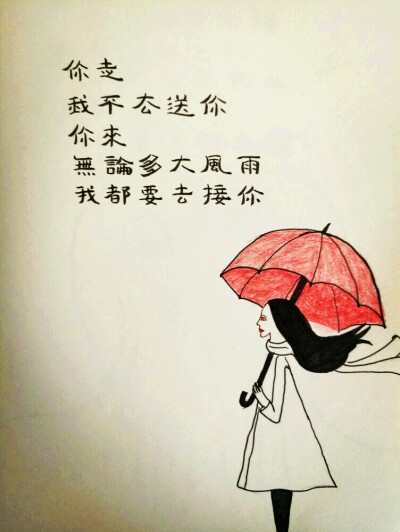 你走
我不去送你
你來
無論多大風雨
我都要去接你